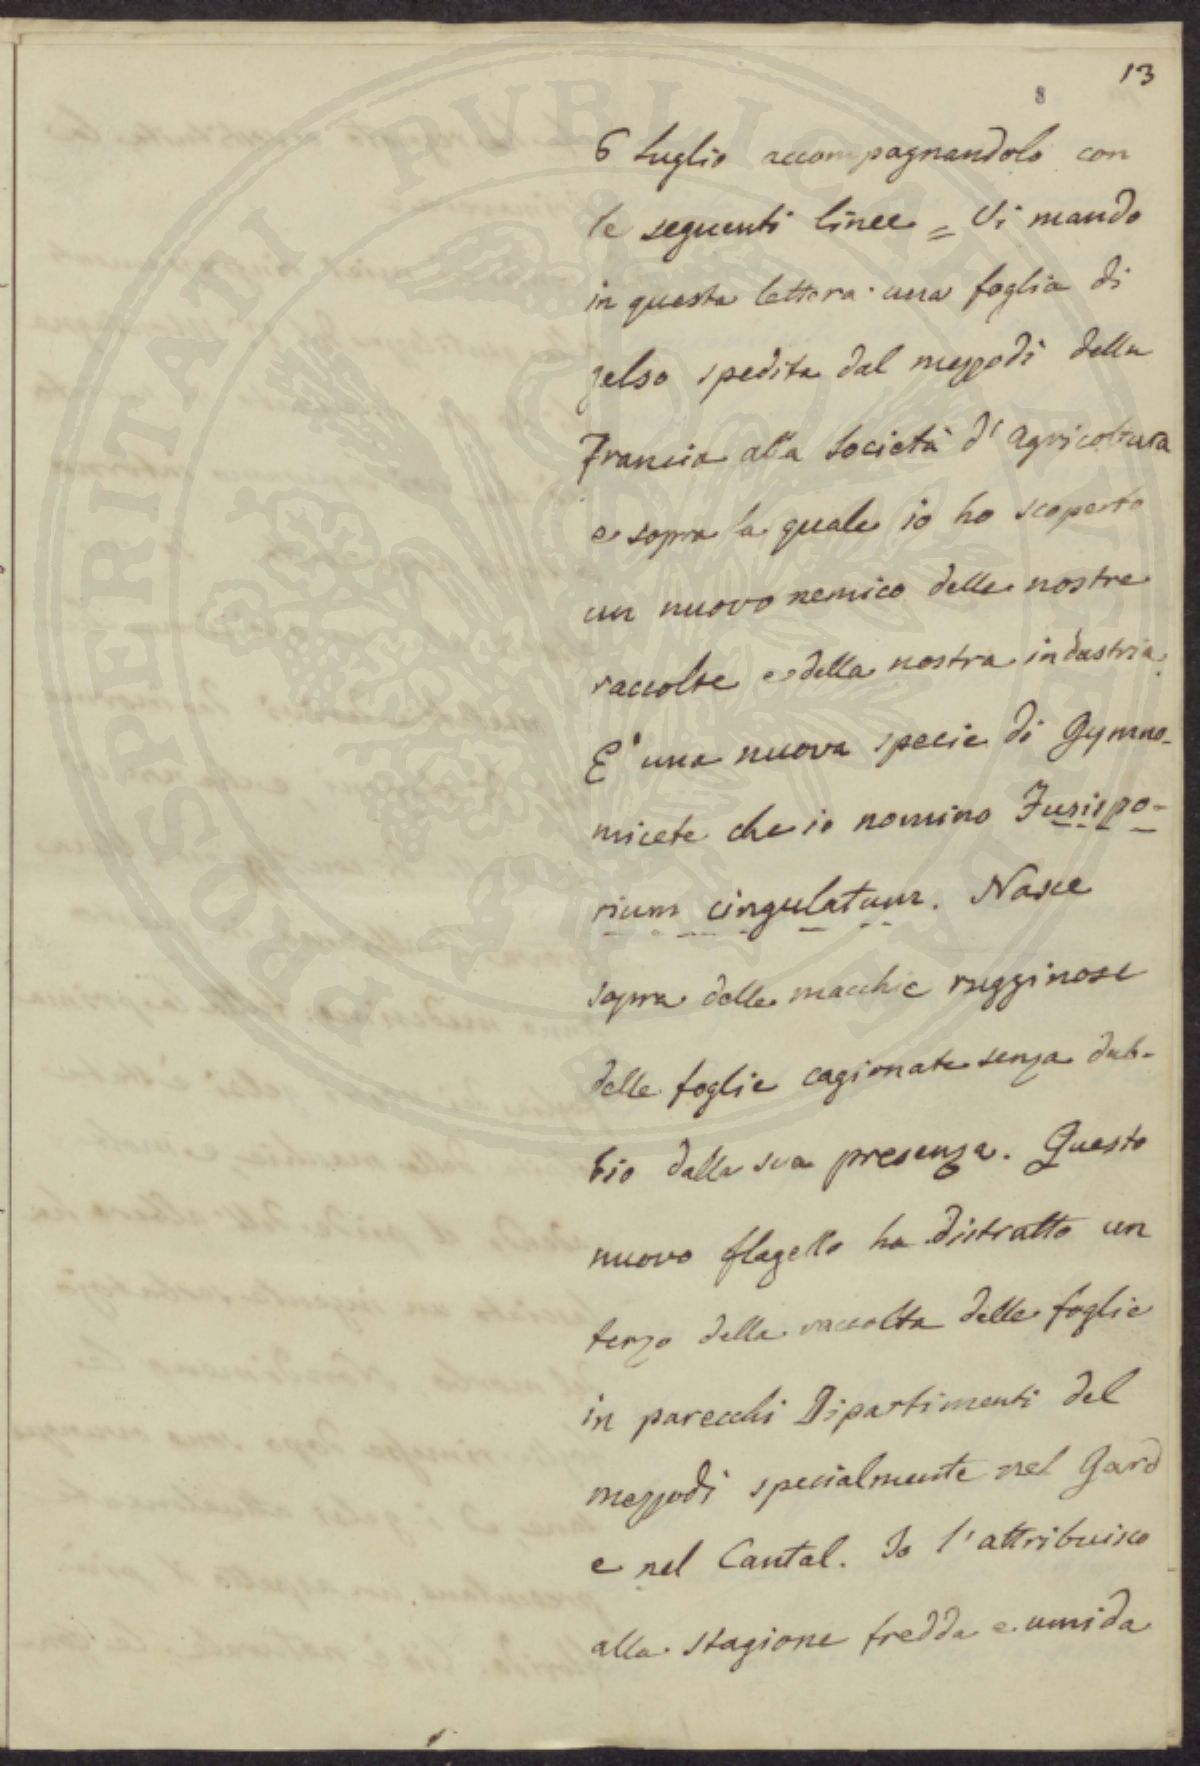 13
8
6 luglio accompagnandolo con
le seguenti linee = Vi mando
in questa lettera una foglia di
gelso spedita dal mezzodì della
Francia alla Società d'Agricoltura
e sopra la quale io ho scoperto
un nuovo nemico delle nostre
raccolte e della nostra industria.
E' una nuova specie di Gymno-
micete che io nomino Fusispo-
rium cingulatum. Nasce
sopra delle macchie rugginose
delle foglie cagionate senza dub-
bio dalla sua presenza. Questo
nuovo flagello ha distratto un
terzo della raccolta delle foglie
in parecchi Dipartimenti del
mezzodì specialmente nel Gard
e nel Cantal. Io l'attribuisco
alla stagione fredda e umida
PROSPERITATI PUBLICAE AUGENDAE